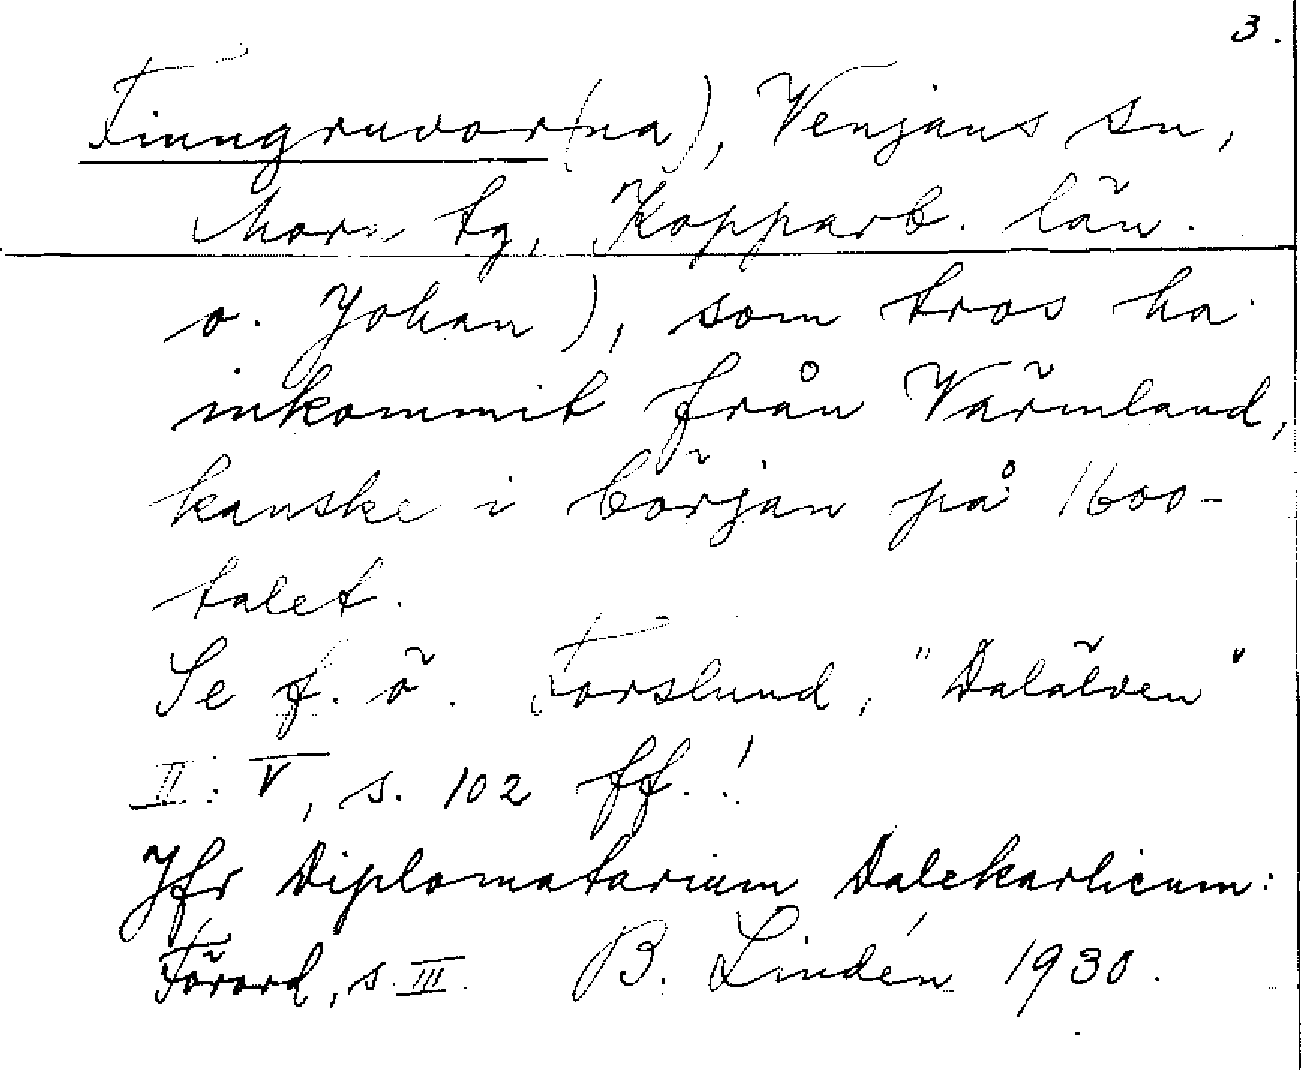 3.
Finngruvor(na), Venjans sn,
Mora tg, Kopparb. län.
o. Johan), som tros ha
inkommit från Värmland,
kanske i början på 1600-
talet.
Se f. ö. Forslund, "Dalälven"
II: V, s. 102 ff.!
Jfr Diplomatarium Dalekarlicum:
Förord, s. III. B. Lindén 1930.